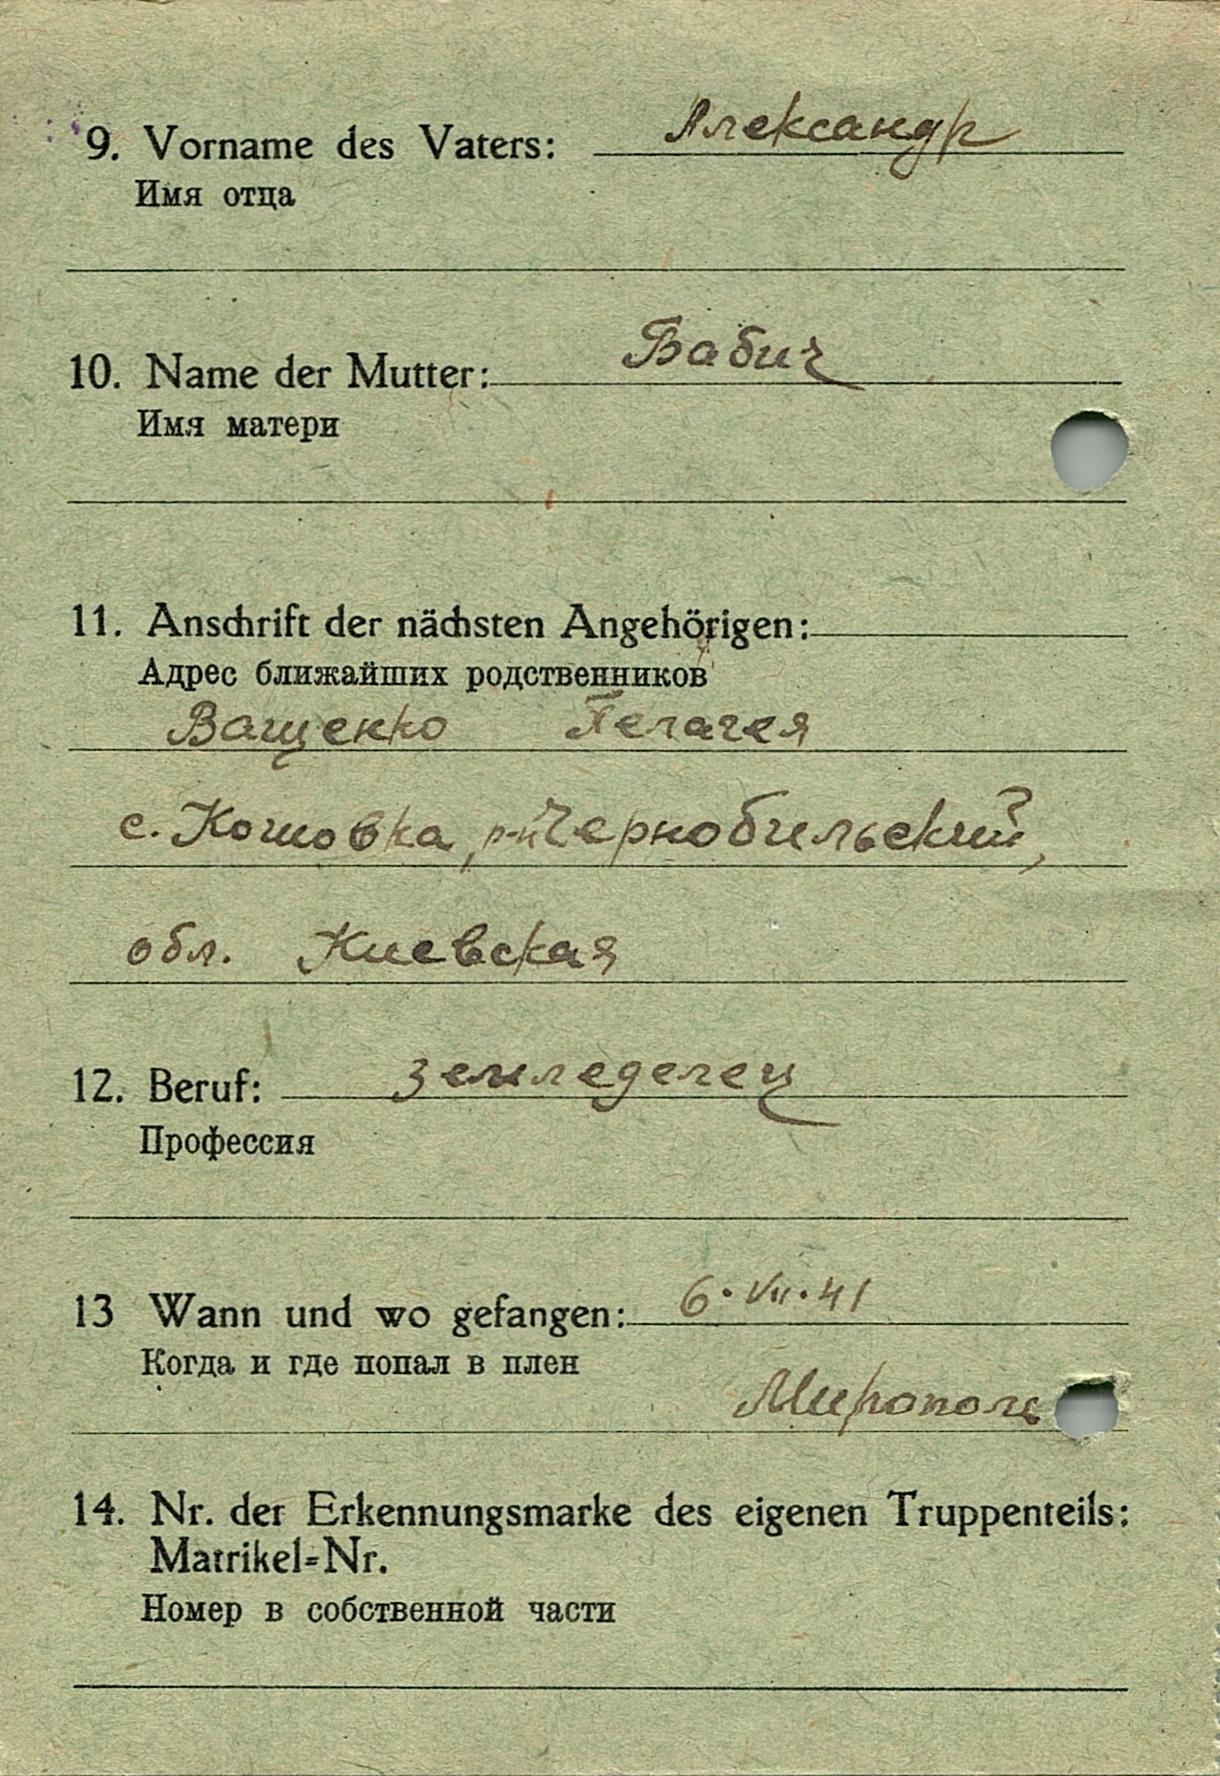 9. Vorname des Vaters: Александр
Имя отца
10. Name der Mutter: Бабич
Имя матери
11. Anschrift der nächsten Angehörigen:
Адрес ближайших родственников
Ващенко Пелагея
с. Кошовка, р-н Чернобильский,
обл. Киевская
12. Beruf: земледелец
Профессия
13 Wann und wo gefangen: 6. VII. 41
Когда и где попал в плен
Мирополь
14. Nr. der Erkennungsmarke des eigenen Truppenteils:
Matrikel=Nr.
Номер в собственной части